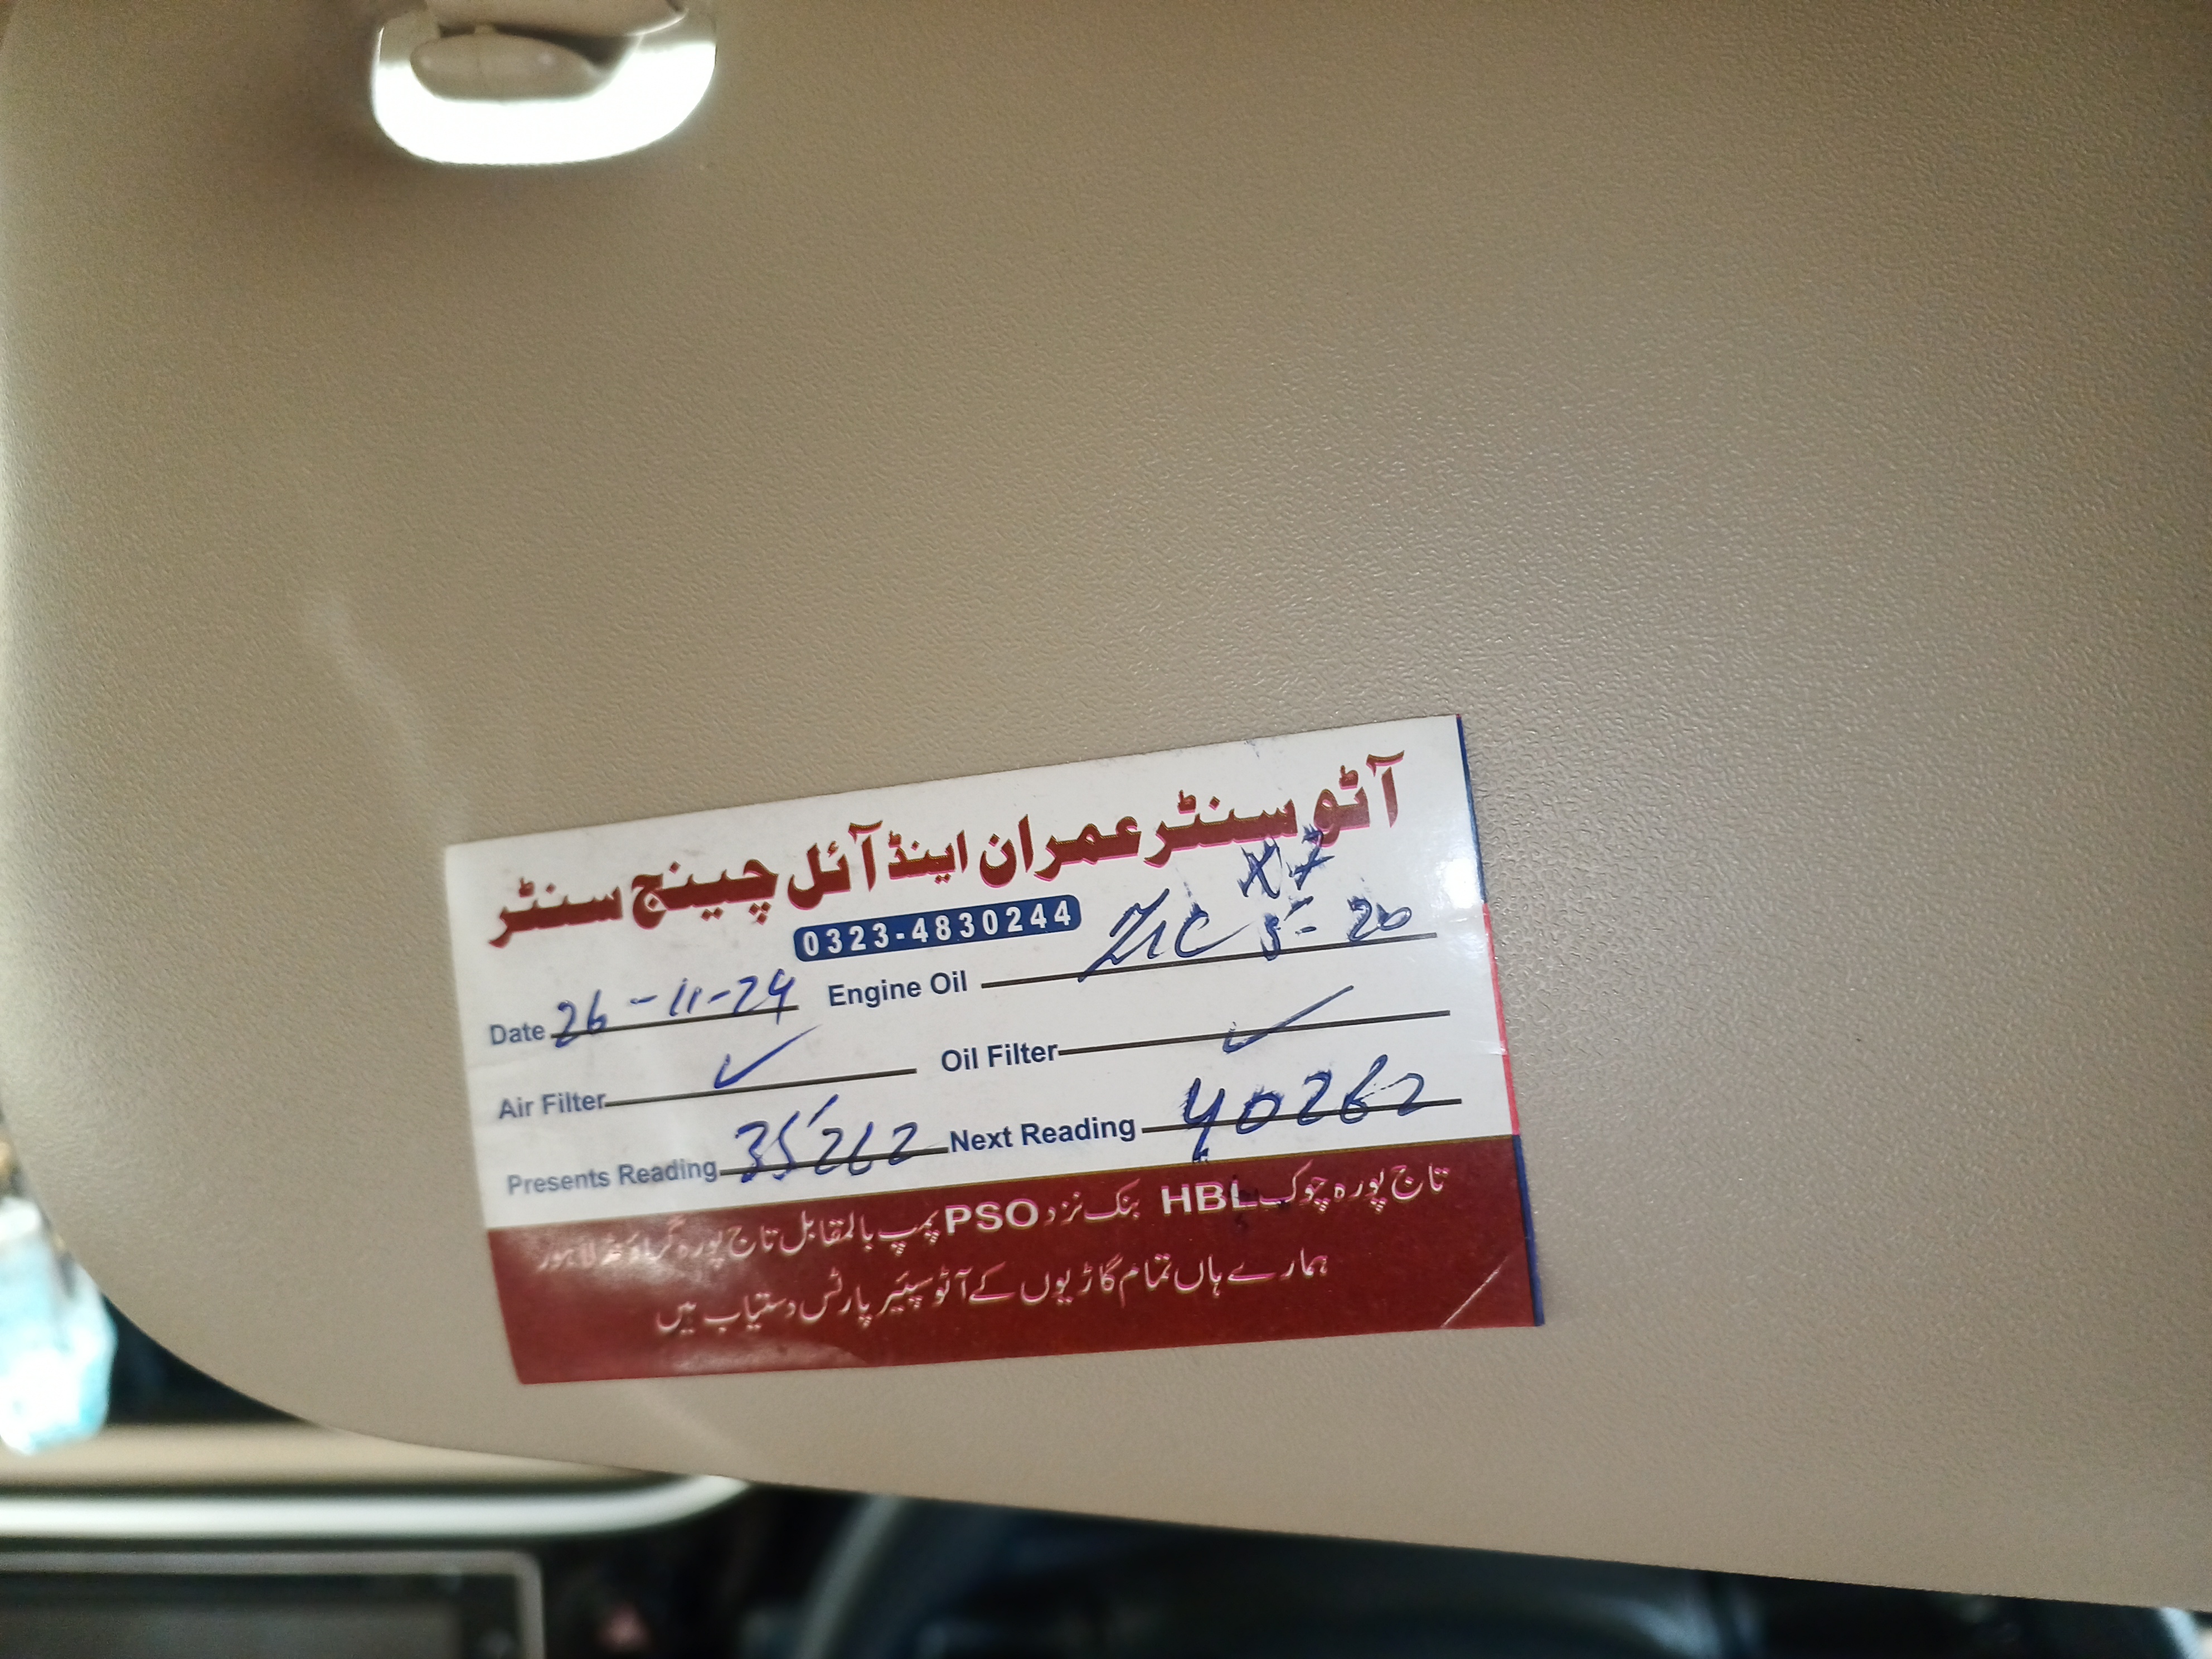 آٹو سنٹر عمران اینڈ آئل چینج سنٹر
0323-4830244
X7
Date 26-11-24 Engine Oil ZIC 5-20
Air Filter ✓ Oil Filter ✓
Presents Reading 35262 Next Reading 40262
تاج پورہ چوک HBL بنک نزد PSO پمپ بالمقابل تاج پورہ گراؤنڈ لاہور
ہمارے ہاں تمام گاڑیوں کے آٹو سپیئر پارٹس دستیاب ہیں